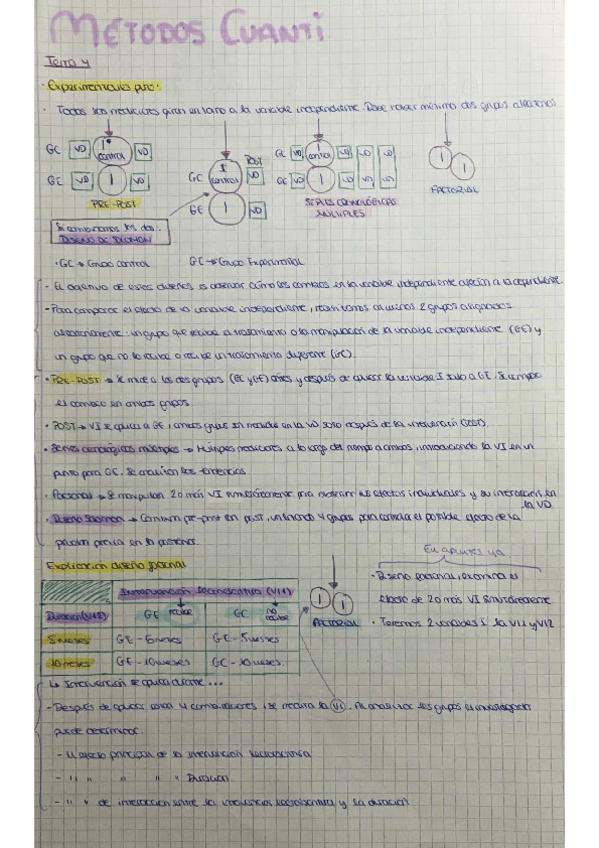 METODOS CUANTI
Tema 4
· Experimentales puro:
· Todos sus mediciones giran en torno a la variable independiente. Debe haber mínimo dos grupos aleatorios
GC VD I control VD
GE VD I VD
PRE-POST
POST
GC I control VD
GE I VD
GC VD I control VD VD VD
GE VD I VD VD VD
SERIES CRONOLÓGICAS
MÚLTIPLES
I I
FACTORIAL
Si combinamos los dos:
DISEÑO DE SOLOMON
· GC → Grupo control
GC → Grupo Experimental
- El objetivo de estos diseños es observar cómo los cambios en la variable independiente afectan a la dependiente.
- Para comparar el efecto de la variable independiente, necesitamos al menos 2 grupos asignados
aleatoriamente: un grupo que recibe el tratamiento o la manipulación de la variable independiente (GE) y
un grupo que no lo recibe o recibe un tratamiento diferente (GC).
· PRE-POST → Se mide a los dos grupos (GC y GE) antes y después de aplicar la variable I solo a GE. Se compara
el cambio en ambos grupos.
· POST → VI se aplica a GE, ambos grupos son medidos en la VD solo después de la intervención (POST).
· Series cronológicas múltiples → Múltiples mediciones a lo largo del tiempo a ambos, introduciendo la VI en un
punto para GE. Se analizan las tendencias
· Factorial → Se manipulan 2 o más VI simultáneamente para examinar los efectos individuales y su interacción en
la VD.
· Diseño Solomon → Combina pre-post con post, utilizando 4 grupos para controlar el posible efecto de la
medición previa en los
Explicación diseño factorial
Intervención Socioeducativa (VI1)
Duración (VI2) GE recibe GC no recibe
5 meses GE - 5 meses GC - 5 meses
10 meses GE - 10 meses GC - 10 meses.
I I
FACTORIAL
En apuntes ya
· Diseño factorial, examina el
efecto de 2 o más VI simultáneamente
· Tenemos 2 variables I la VI1 y VI2
↳ Intervención se aplica durante ...
- Después de aplicar las 4 combinaciones, se mediría la VD. Al analizar los grupos el investigador
puede determinar:
- El efecto principal de la intervención socioeducativa
- " " " " " Duración
- " " de interacción entre la intervención socioeducativa y la duración